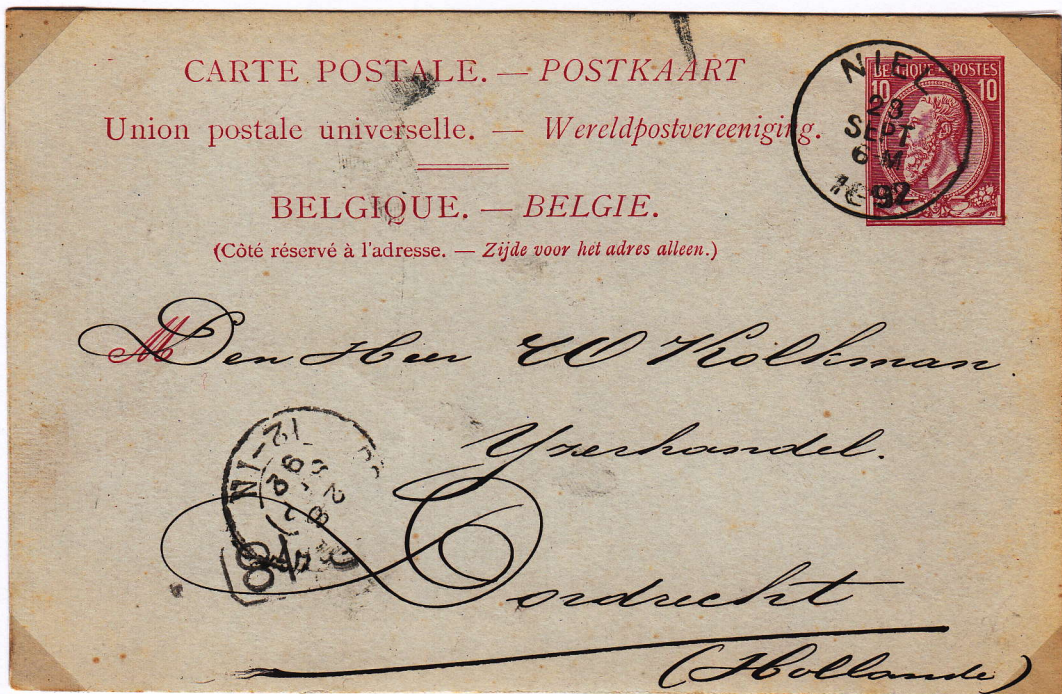 CARTE POSTALE. — POSTKAART
Union postale universelle. — Wereldpostvereeniging.
BELGIQUE. — BELGIE.
(Côté réservé à l'adresse. — Zijde voor het adres alleen.)
BELGIQUE POSTES
10 10
NIEL
23
SEPT
6 M
1892
M Den Heer W Kolkman.
Yzerhandel.
Dordrecht
(Hollande)
12-1N